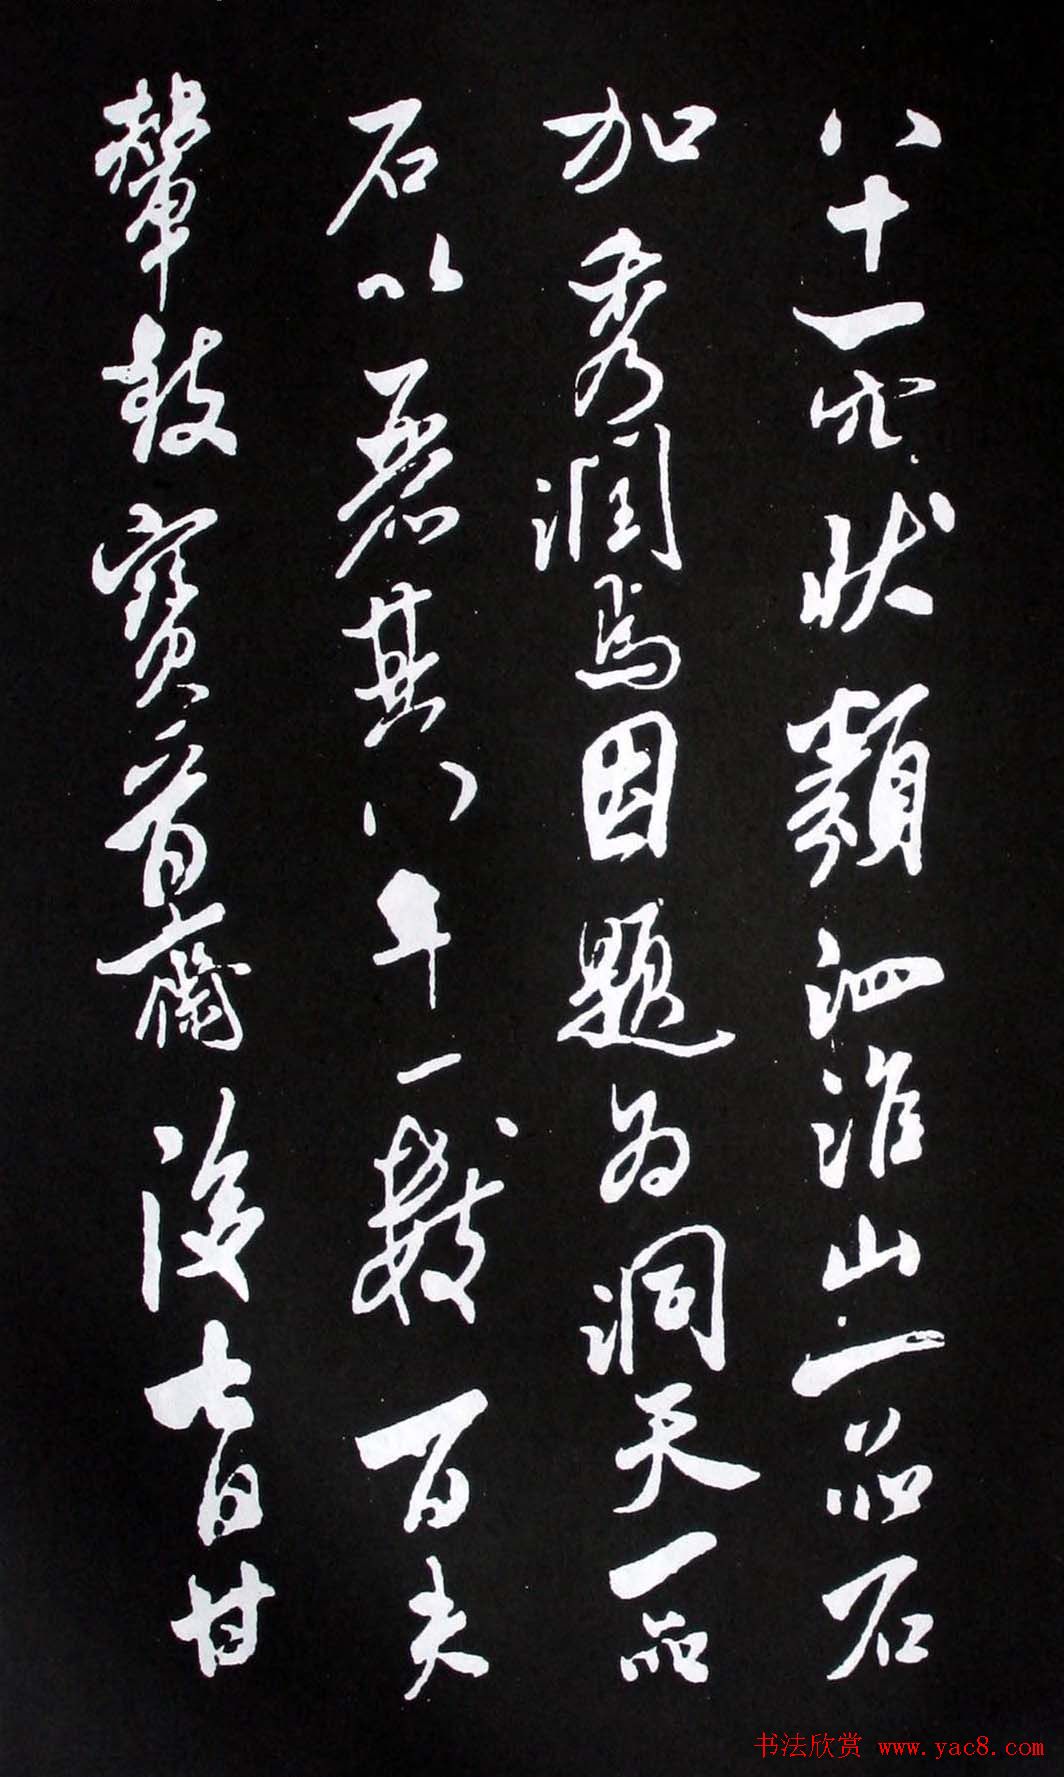 八十一穴狀類泗淮山一品石
加秀潤焉因題為洞天一品
石以丑石其八十一數百夫
輦致寶晉齋後七日甘
書法欣赏 www.yac8.com